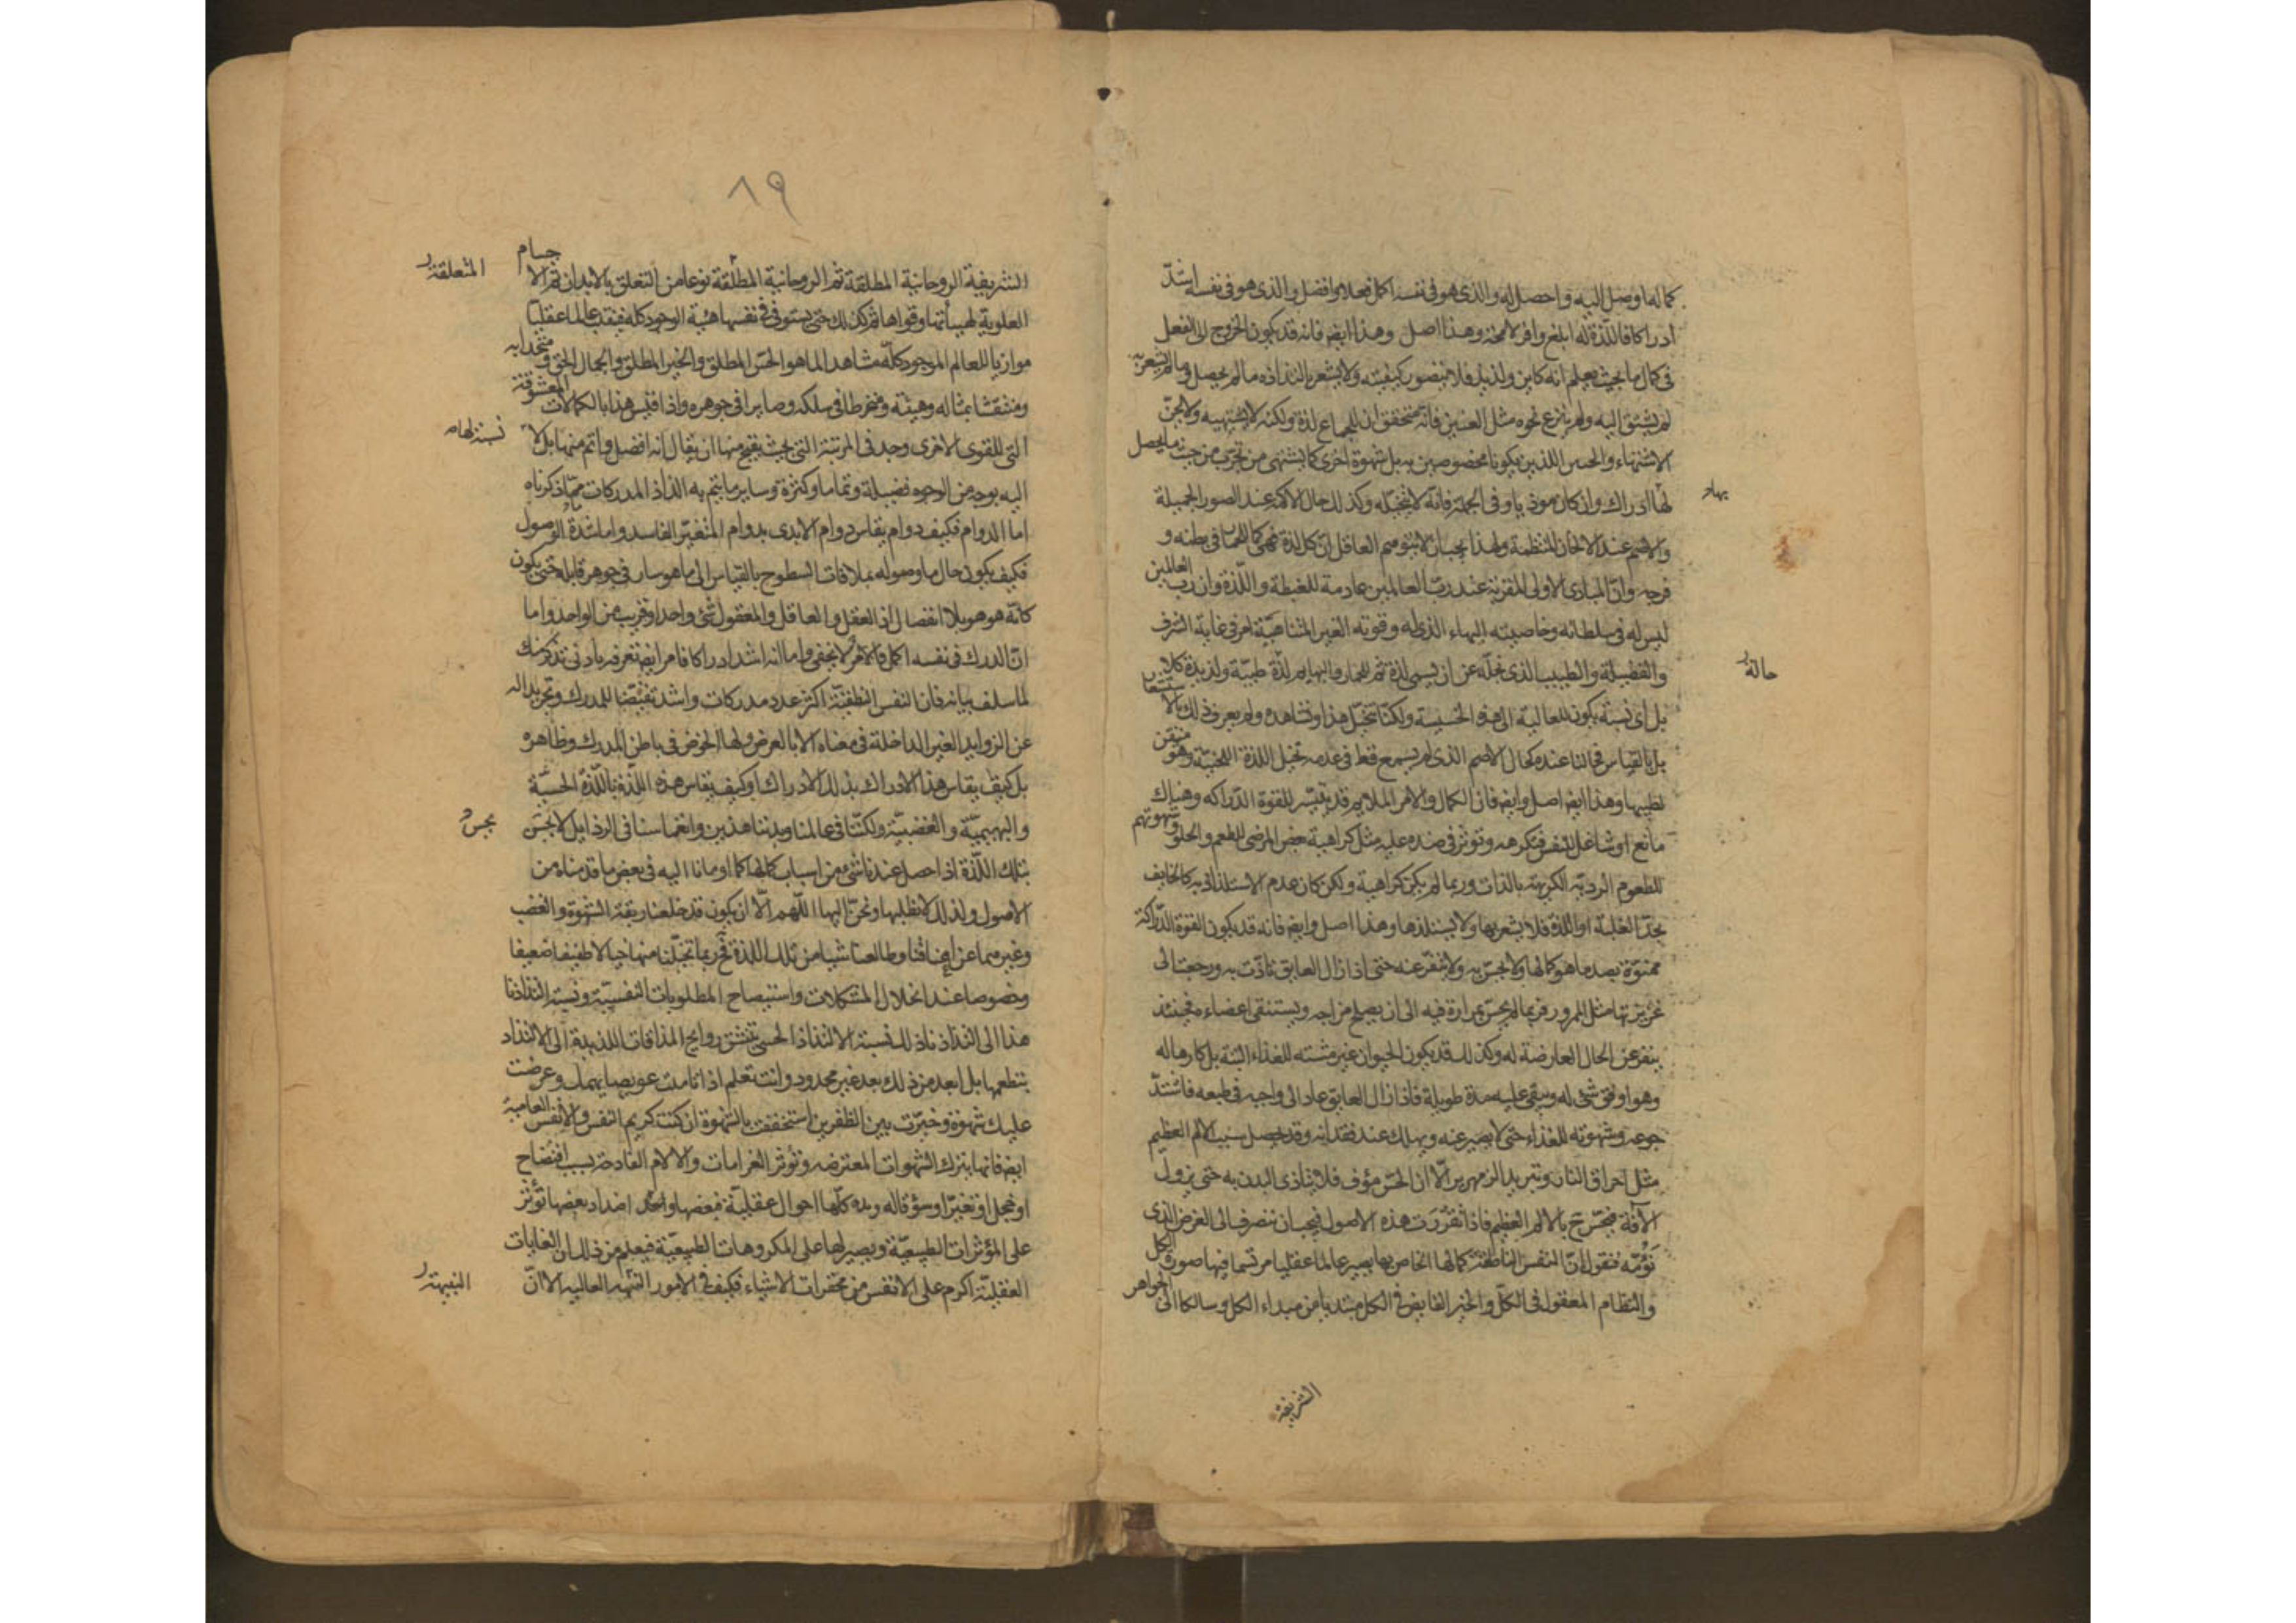 كماله اوصل اليه واحصل له والذى هو فى نفسه اكمل فعلا وافضل والذى هو فى نفسه اشدّ
ادراكا فاللّذة له ابلغ واوفر لا محة وهذا اصل وهذا ايض فانه قد يكون الخروج الى الفعل
فى كمال ما بحيث يعلم انه كاين ولذيذ فلا يتصور كيفيته ولا يشعر بالتذاذه ما لم يحصل وما لم يشعر به
لم يشتق اليه ولم ينزع نحوه مثل العنين فانه متحقق ان للجماع لذة ولكنه لا يشتهيه ولا يحنّ
الاشتهاء والحنين اللذين يكونا مخصوصين به بل شهوة اخرى كما يشتهى من يجرّب من حيث ما يحصل
بها
لها ادراك وان كان موذيا وفى الجملة فانّه لا يتخيّله وكذلك حال الاكمه عند الصور الجميلة
والاصم عند الالحان المنتظمة ولهذا يجب ان لا يتوهم العاقل ان كل لذة فهى كما للحمار فى بطنه و
فرجه وانّ المبادى الاولى المقربة عند ربّ العالمين عادمة للغبطة واللّذة وان ربّ العالمين
ليس له فى سلطانه وخاصيته البهاء الذى له وقوته الغير المتناهيّة امر فى غاية الشرف
حالة
والفضيلة والطيب الذى نجلّه عن ان يسمى لذة ثم للحمار والبهايم لذّة طيبّة ولذيذة كلا
بل اى نسبة يكون للعالية الى هذه الخسيسة ولكنّا نتخيّل هذا ونشاهده ولم يعرف ذلك بالاستشعار
بل بالقياس فحالنا عنده كحال الاصم الذى لم يسمع قط فى عدمه تخيل اللذة اللحنيّة وهو متيقن
لطيبها وهذا ايض اصل وايض فان الكمال والامر الملايم قد يتيسّر للقوة الدّراكه وهناك
مانع او شاغل للنفس فتكرهه وتوثر فى ضده عليه مثل كراهية بعض المرضى للطعم والحلو وشهوتهم
للطعوم الرديّه الكريهة بالذات وربما لم يكن كراهية ولكن كان عدم الاستلذاذ به كالخايف
يجدّ الغلبة او اللذة فلا يشعر بها ولا يستلذها وهذا اصل وايض فانه قد يكون القوة الدّراكة
ممنوّة بضد ما هو كمالها ولا يحسّ به ولا تنفر عنه حتى اذا زال العايق تاذّت به ورجعت الى
غريزتها مثل الممرور فربما لم يحسّ بمرارة فيه الى ان يصلح مزاجه ويستنقى اعضاءه فحينئذ
ينفر عن الحال العارضة له وكذلك قد يكون الحيوان غير مشته للغذاء البتة بل كارها له
وهو اوفق شئ له ويبقى عليه مدة طويلة فاذا زال العايق عاد الى واجبه فى طبعه فاشتدّ
جوعه وشهوته للغذاء حتى لا يصبر عنه ويهلك عند فقدانه وقد يحصل سبب الالم العظيم
مثل احراق النار وتبريد الزمهرير الّا ان الحسّ مؤف فلا يتاذى البدن به حتى يزول
الآفة فيحسّ ح بالالم العظيم فاذا تقرّرت هذه الاصول فيجب ان ننصرف الى الغرض الذى
نَؤُمّه فنقول انّ النفس الناطقة كمالها الخاص بها يصير عالما عقليا مرتسما فيها صورة الكل
والنظام المعقول فى الكلّ والخير الفايض فى الكل مبتديا من مبداء الكل وسالكا الى الجواهر
الشريفة
٨٩
المتعلقة
الشريفة الروحانية المطلقة ثم الروحانية المطلّقة نوعا من التعلق بالابدان ثم الاجسام
العلوية لهيأتها وقواها ثم كذلك حتى يستوفى فى نفسها هيئة الوجود كله فينقلب عالما عقليّا
موازيا للعالم الموجود كلّه مشاهدا لما هو الحسّ المطلق والخير المطلق والجمال الحق ومتحدا به
ومنتقشا بمثاله وهيئته ومنخرطا فى سلكه وصايرا فى جوهره واذا اقيس هذا بالكمالات المعشوقة
نسبة لها
التى للقوى الاخرى وجد فى المرتبة التى بحيث يقبح منها ان يقال انه افضل واتم منها بل لا
اليه بوجه من الوجوه فضيلة وتماما وكثرة وساير ما يتم به الذاذ المدركات ممّا ذكرناه
اما الدوام فكيف دوام يقاس دوام الابدى بدوام المتغيّر الفاسد واما شدة الوصول
فكيف يكون حال ما وصوله بملاقات السطوح بالقياس الى ما هو سار فى جوهر قابله حتى يكون
كانّه هو هو بلا انفصال اذ العقل والعاقل والمعقول شئ واحد او قريب من الواحد واما
انّ المدرك فى نفسه اكمل فالامر لا يخفى واما انه اشد ادراكا فامر ايض تعرفه بادنى تذكر منك
لما سلف بيانه فان النفس النطقيّة اكثر عدد مدركات واشد تفيّضا للمدرك وتجريدا له
عن الزوايد الغير الداخلة فى معناه الا بالعرض ولها الخوض فى باطن المدرك وظاهره
بل كيف يقاس هذا الادراك بذلك الادراك او كيف يقاس هذه اللّذة باللّذة الحسّية
نحس
والبهيميّة والغضبيّة ولكنّا فى عالمنا وبدننا هذين وانغماسنا فى الرذايل لا نحسّ
بتلك اللّذة اذا حصل عندنا شئ من اسباب كمالها كما اومانا اليه فى بعض ما قدمناه من
الاصول ولذلك لا نطلبها ونحنّ اليها اللّهم الّا ان يكون قد خلعنا ربقة الشهوة والغضب
وغيرهما عن اعناقنا وطالعنا شيا من تلك اللذة فح ربما تخيّلنا منها خيالا طفيفا ضعيفا
وخصوصا عند انحلال المشكلات واستيضاح المطلوبات النفسيّة ونسبة التذاذنا
هذا الى التذاذنا ذلك نسبة الالتذاذ الحسى بتنشق روايح المذاقات اللذيذة الى الالتذاذ
بتطعمها بل ابعد من ذلك بعد غير محدود وانت تعلم اذا تامت عويصا يهمك وعرضت
عليك شهوة وخيّرت بين الظفرين استخففت بالشهوة ان كنت كريم النفس والانفس العامية
ايض فانها يترك الشهوات المعترضه وتوثر الغرامات والالام الفادحة بسبب افتضاح
او خجل او تغيّر او سوء قاله وهذه كلّها احوال عقليّة فبعضها واضداد بعضها تؤثر
على المؤثرات الطبيعيّة ويصبر لها على المكروهات الطبيعيّة فيعلم من ذلك ان الغايات
النبيهة
العقليّة اكرم على الانفس من محقرات الاشياء فكيف فى الامور العاليه الا انّ